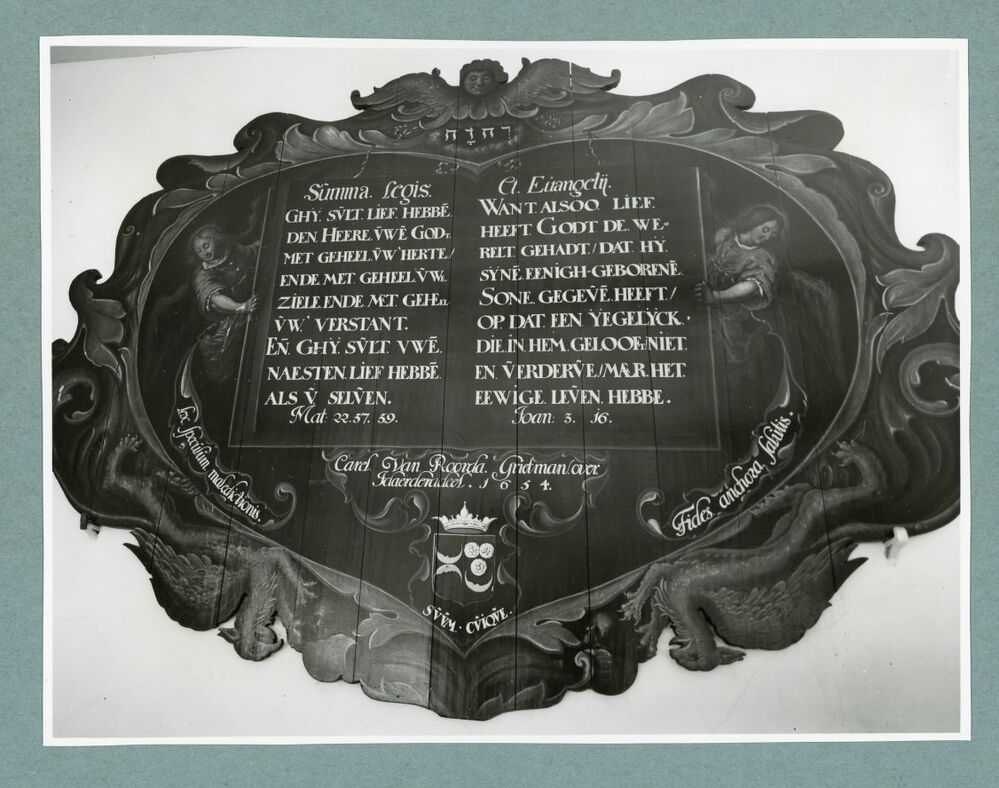 יהוה
Sũmma. Legis.
GHŸ. SṼLT. LIEF. HEBBẼ.
DEN. HEERE. ṼWẼ GODT.
MET GEHEEL. ṼW' HERTE/
ENDE MET GEHEEL. ṼWE.
ZIELE ENDE MET GEHEEL
ṼW' VERSTANT.
EÑ. GHŸ. SṼLT. VWẼ.
NAESTEN LIEF HEBBẼ.
ALS Ṽ SELṼEN.
Mat 22.57. 59.
Et. Eũangelÿ.
WANT. ALSOO LIEF
HEEFT GODT. DE. WE=
RELT. GEHADT/ DAT. HŸ.
SŸNẼ. EENIGH-GEBORENẼ.
SONE. GEGEṼẼ. HEEFT/
OP. DAT. EEN YEGELŸCK.
DIE. IN. HEM. GELOOFT. NIET.
EN ṼERDERṼE/ MAER. HET.
EEWIGE. LEṼEN. HEBBE.
Ioan: 3. 16.
Lex speculum maledictionis.
Fides anchora salutis.
Carel Van Roorda. Grietman over
Idaerderadeel. 1654.
SṼṼM. CṼIQṼE.